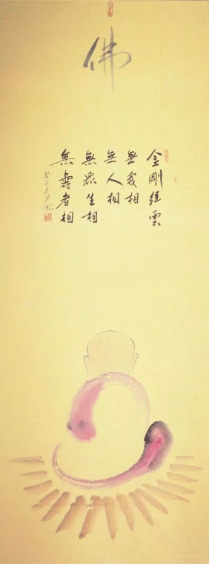 佛
金剛經雲
無我相
無人相
無眾生相
無壽者相